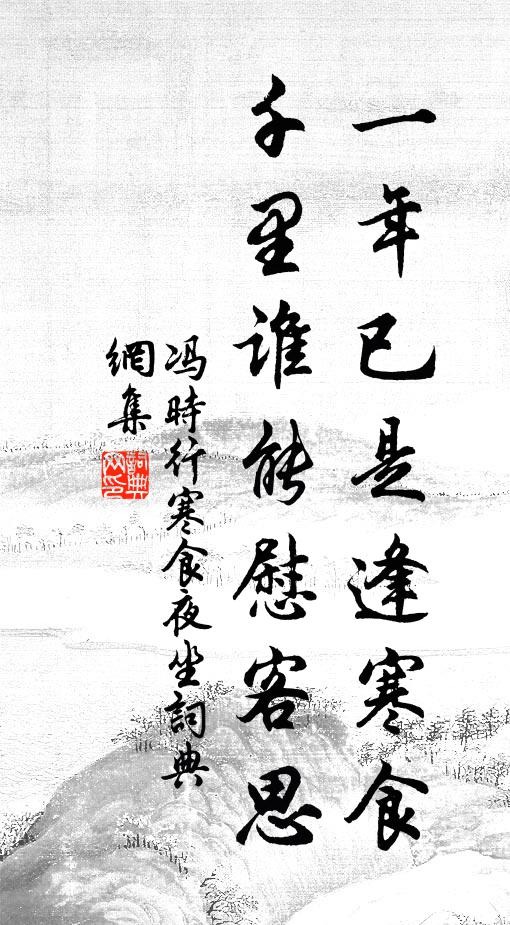 一年已是逢寒食
千里誰能慰客思
冯時行寒食夜坐詞典
網集